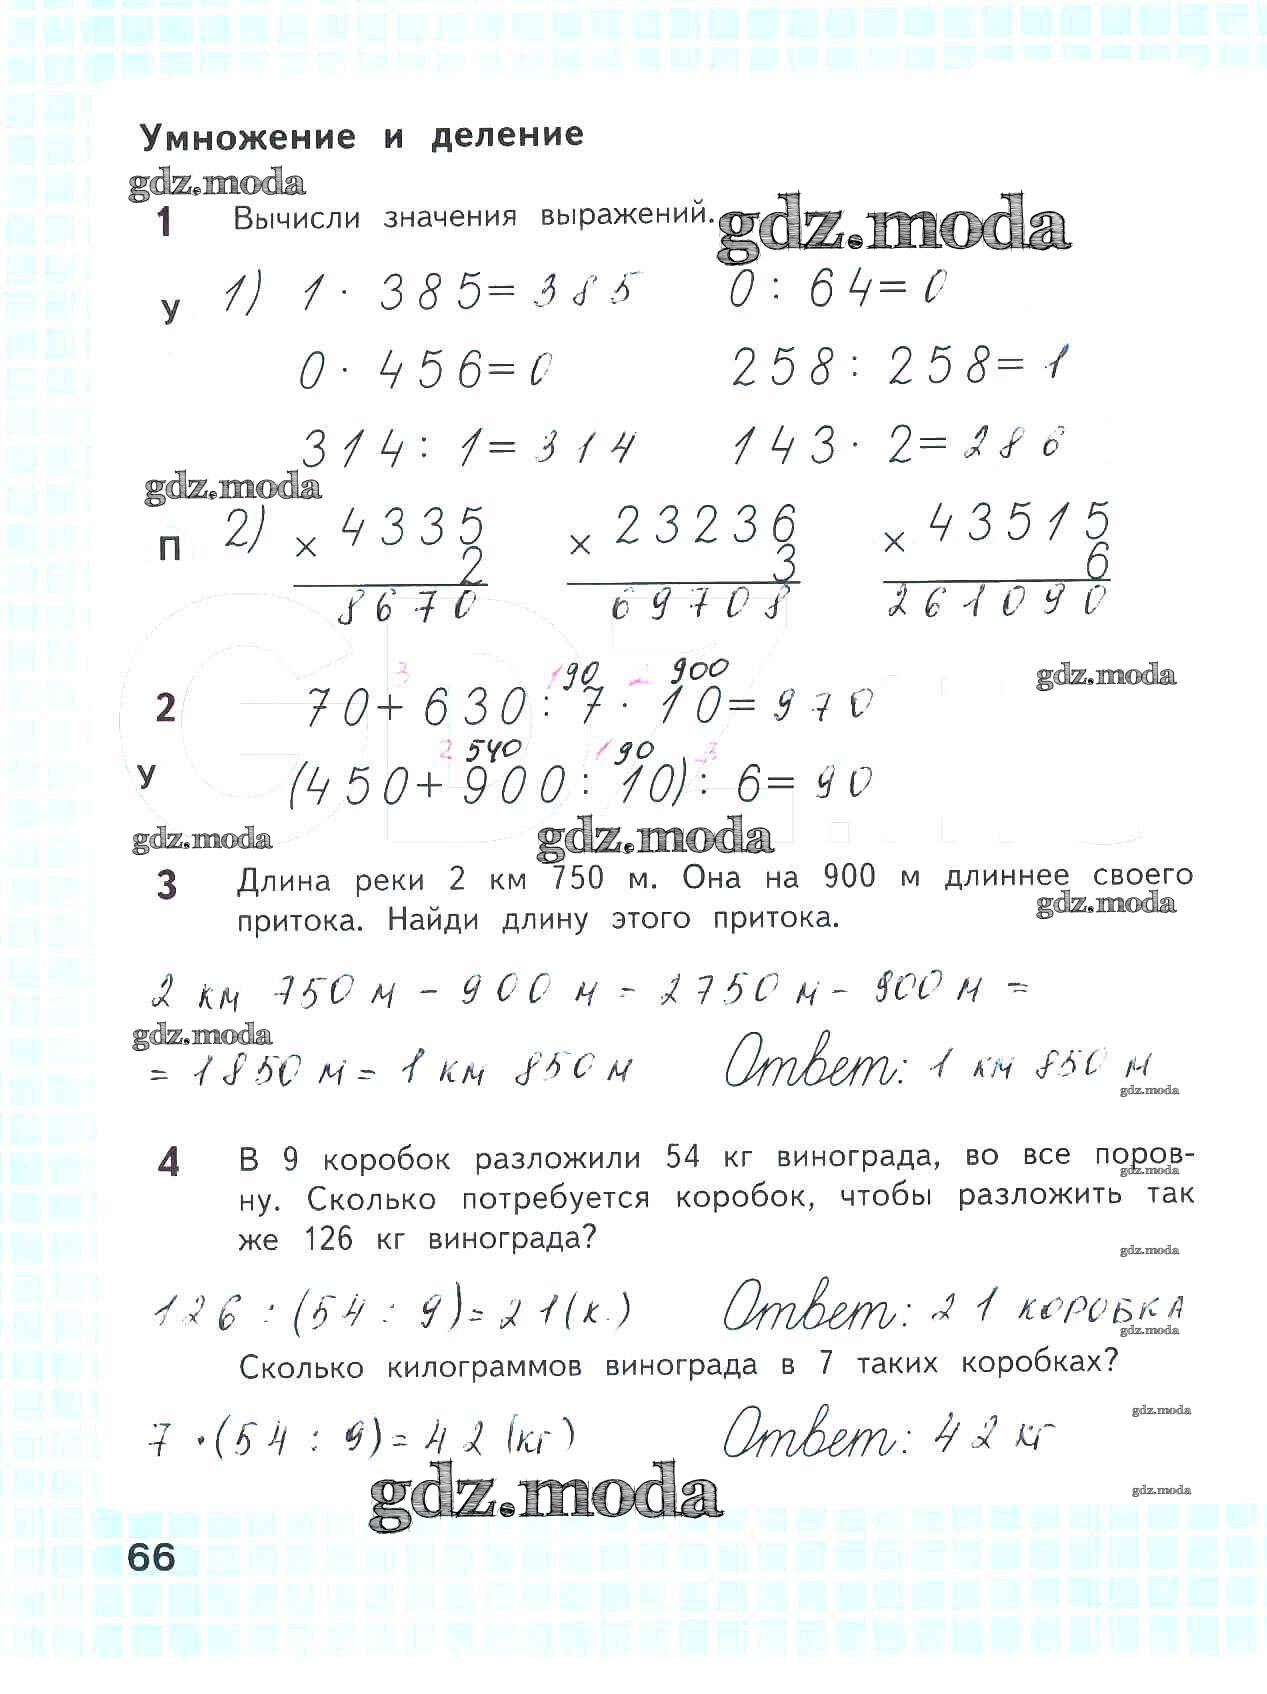 Умножение и деление
gdz.moda
1 Вычисли значения выражений. gdz.moda
у 1) 1 · 385= 385 0 : 64= 0
0 · 456= 0 258 : 258= 1
314 : 1= 314 143 · 2= 286
gdz.moda
п 2) × 4335 × 23236 × 43515
2 3 6
8670 69708 261090
3 1 90 2 900 gdz.moda
2 70+ 630 : 7 · 10= 970
2 540 1 90 3
у (450+ 900 : 10) : 6= 90
gdz.moda gdz.moda
3 Длина реки 2 км 750 м. Она на 900 м длиннее своего
gdz.moda
притока. Найди длину этого притока.
2 км 750 м - 900 м = 2750 м - 900 м =
gdz.moda
= 1850 м = 1 км 850 м Ответ: 1 км 850 м
gdz.moda
4 В 9 коробок разложили 54 кг винограда, во все поров-
gdz.moda
ну. Сколько потребуется коробок, чтобы разложить так
же 126 кг винограда?
gdz.moda
126 : (54 : 9) = 21 (к.) Ответ: 21 коробка
gdz.moda
Сколько килограммов винограда в 7 таких коробках?
gdz.moda
7 · (54 : 9) = 42 (кг) Ответ: 42 кг
gdz.moda gdz.moda
66